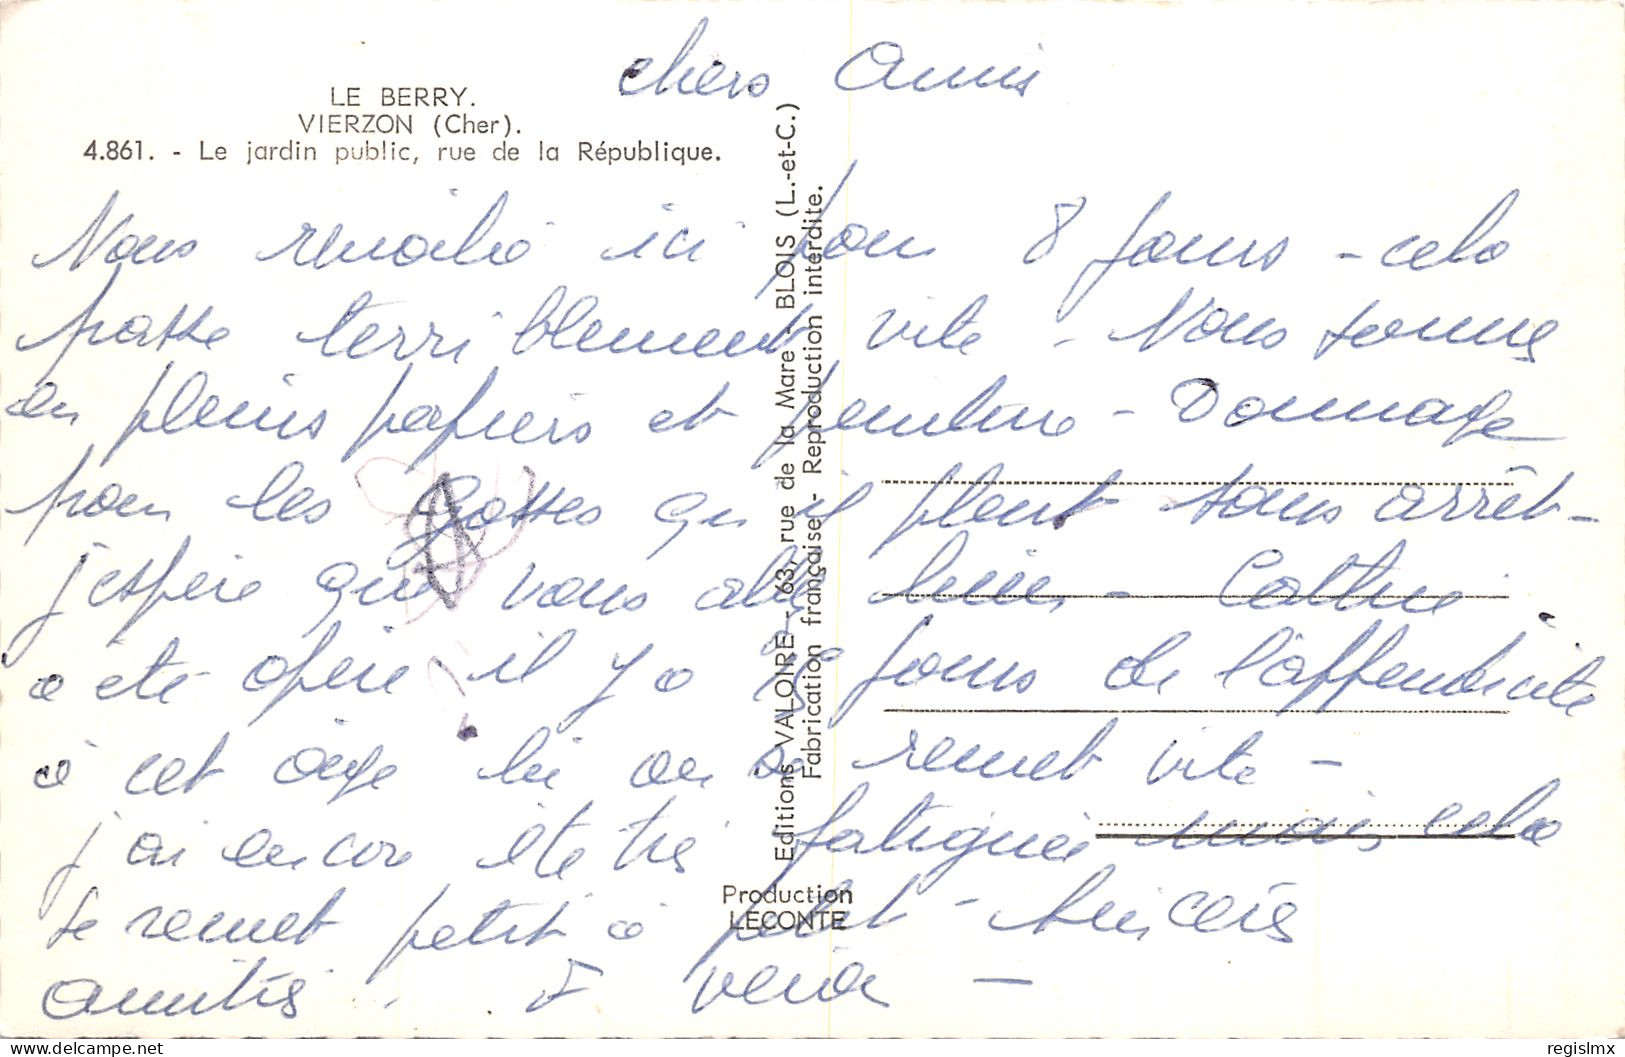 chers Amis
LE BERRY.
VIERZON (Cher).
4.861. - Le jardin public, rue de la République.
Nous revoilà ici pour 8 jours - cela
passe terriblement vite - Nous sommes
en pleins papiers et peinture - Dommage
pour les Gosses qu'il pleut sans arrêt -
j'espère que vous allez bien -
a été opéré il y a jours de l'appendicite
à cet âge là on se remet vite -
j'ai encore été très fatiguée mais cela
se remet petit à petit - Sincères
amitiés.
Editions VALOIRE - 63, rue de la Mare - BLOIS (L.-et-C.)
Fabrication française - Reproduction interdite.
Production
LECONTE
© delcampe.net
regislmx